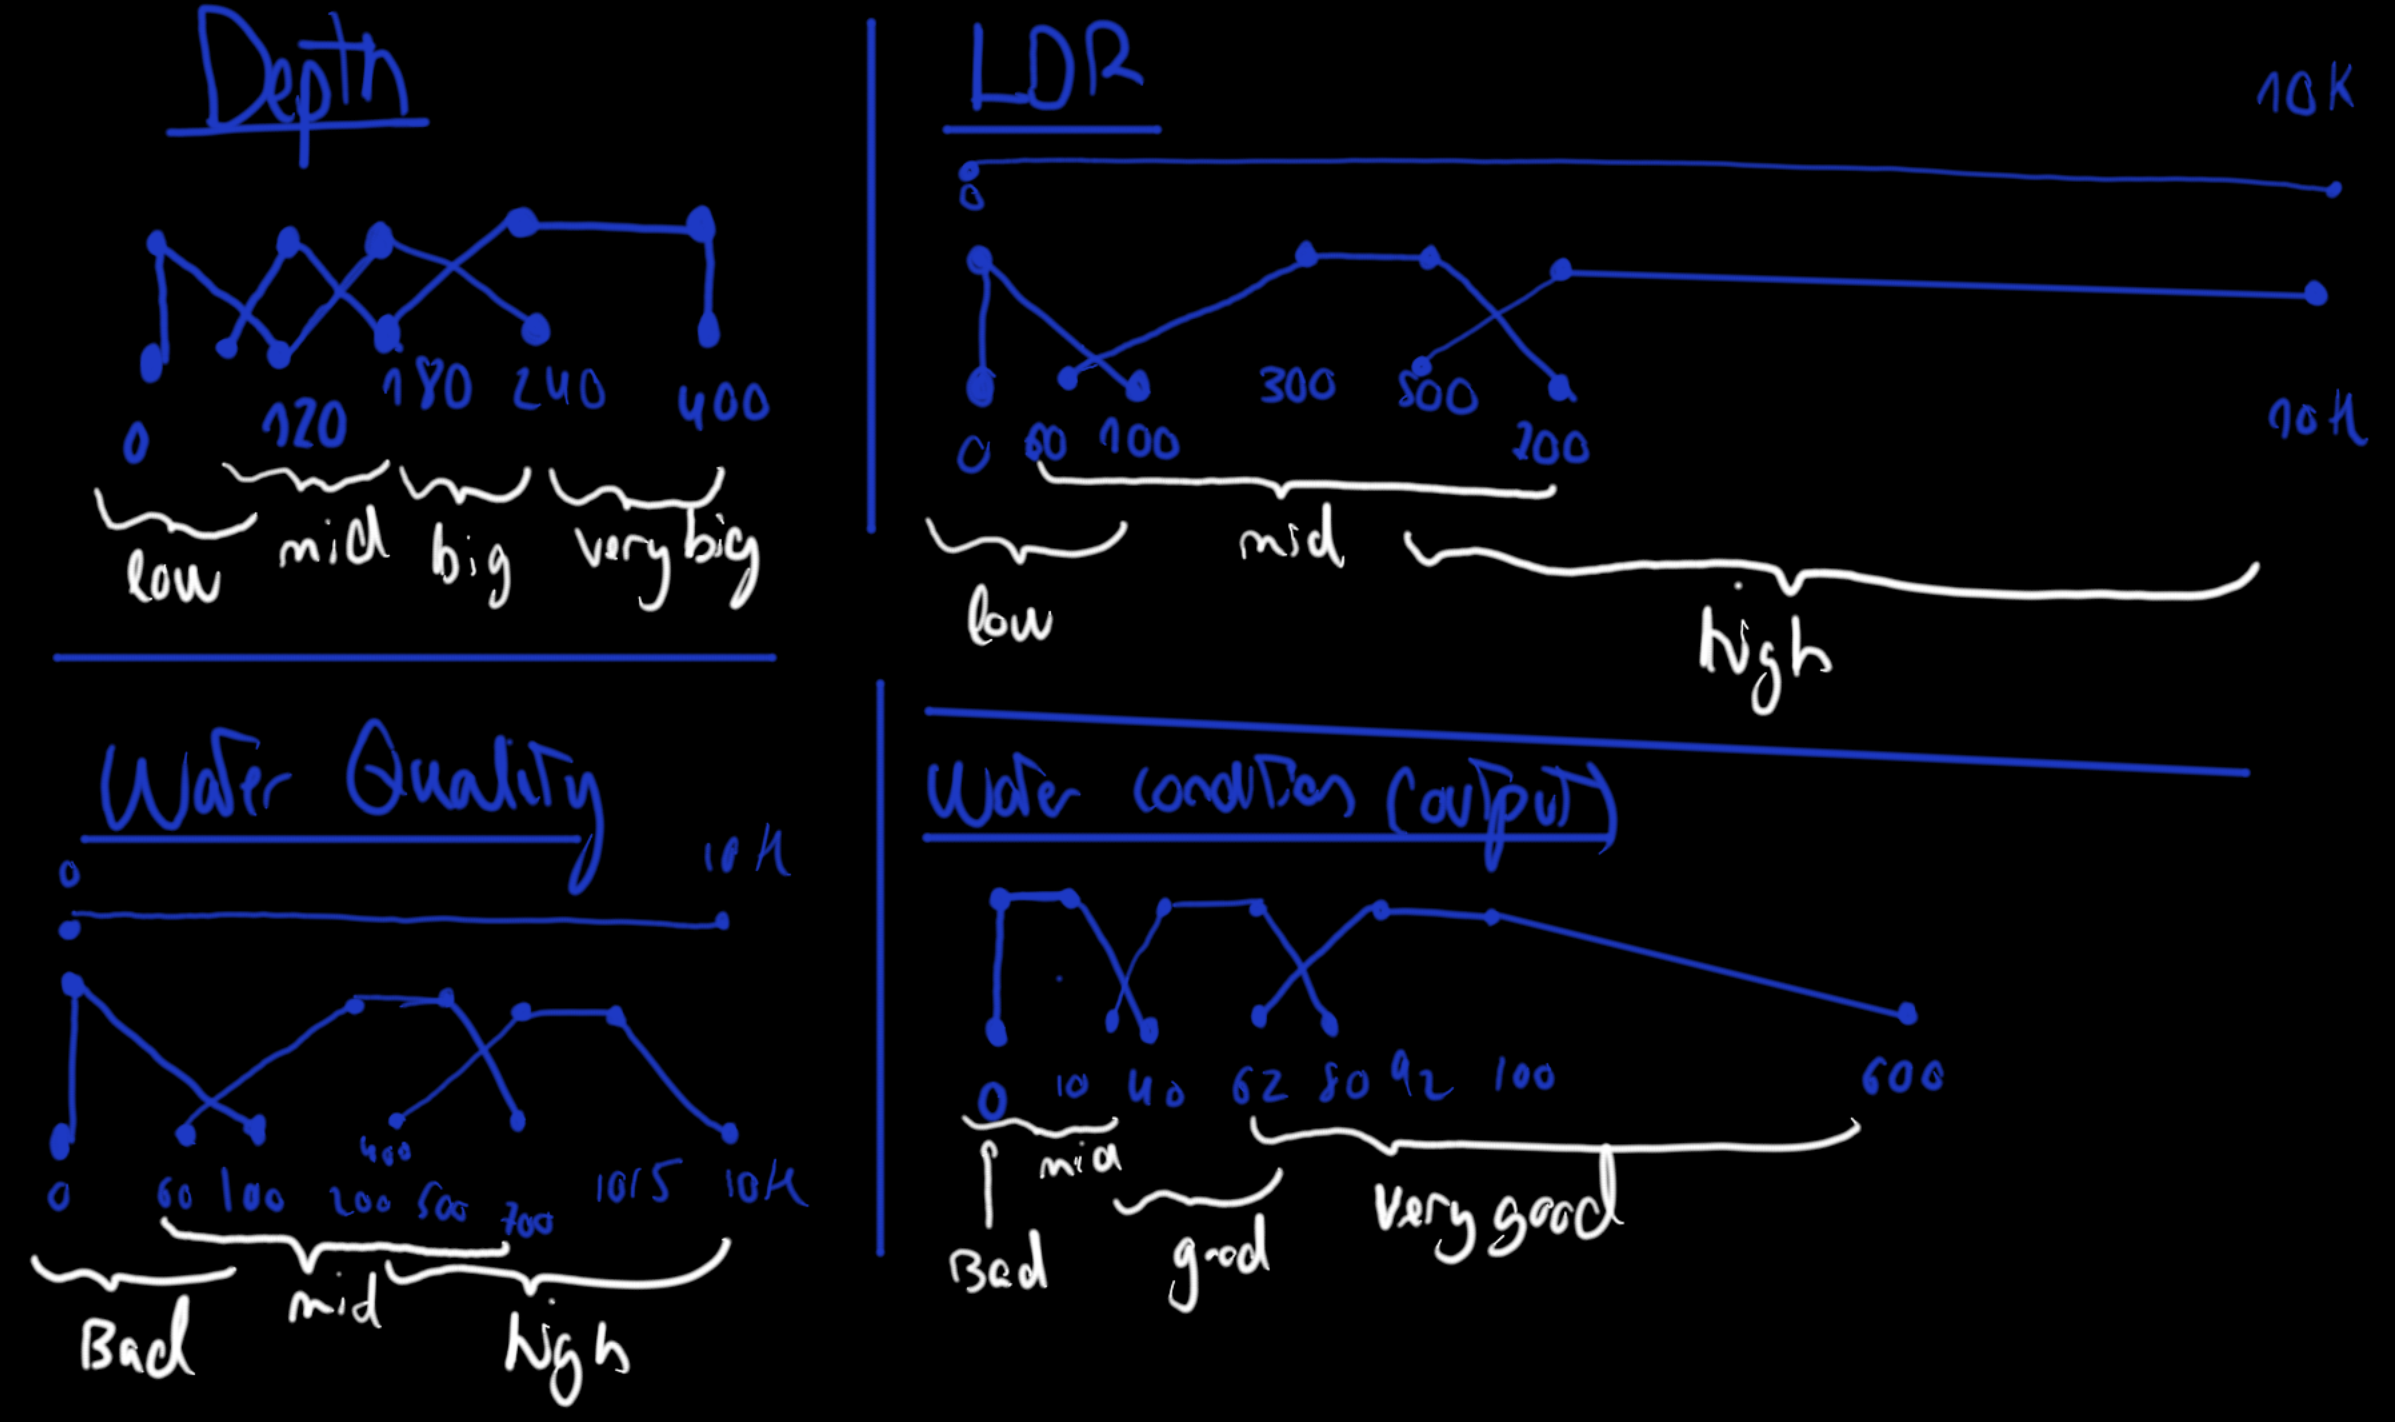 Depth
0 120 180 240 400
low mid big very big
LDR
10K
0
0 60 100 300 500 200
10K
low mid high
Water Quality
0 10K
0 60 100 200 400 500 700 1015 10K
Bad mid high
Water condition (output)
0 10 40 62 80 92 100 600
Bad mid good very good